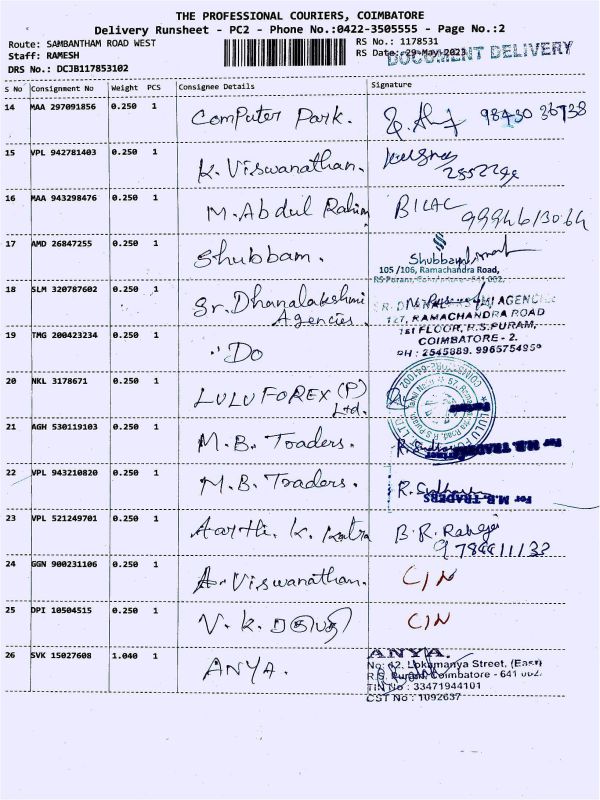 THE PROFESSIONAL COURIERS, COIMBATORE
Delivery Runsheet - PC2 - Phone No.:0422-3505555 - Page No.:2
Route: SAMBANTHAM ROAD WEST
Staff: RAMESH
DRS No.: DCJB117853102
RS No.: 1178531
RS Date: 29-May-2023
DOCUMENT DELIVERY
S No Consignment No Weight PCS Consignee Details Signature
14 MAA 297091856 0.250 1 Computer Park. 98430 36738
15 VPL 942781403 0.250 1 K. Viswanathan.
16 MAA 943298476 0.250 1 M. Abdul Rahim
17 AMD 26847255 0.250 1 Shubbam.
Shubbam
105/106, Ramachandra Road,
18 SLM 320787602 0.250 1 Sr. Dhanalakshmi
Agencies.
AGENCIES
127, RAMACHANDRA ROAD
1st FLOOR, R.S.PURAM,
COIMBATORE - 2.
19 TMG 200423234 0.250 1 " Do
20 NKL 3178671 0.250 1 LULU FOREX (P)
Ltd.
21 AGH 530119103 0.250 1 M. B. Traders.
For M.B. TRADERS
22 VPL 943210820 0.250 1 M. B. Traders.
For M.B. TRADERS
23 VPL 521249701 0.250 1 Aarthi. K. Katra
24 GGN 900231106 0.250 1 A. Viswanathan. C/N
25 DPI 10504515 0.250 1 V. K. C/N
26 SVK 15027608 1.040 1 ANYA.
ANYA.
No: 42, Lokamanya Street, (East)
R.S. Puram, Coimbatore - 641 002.
TIN No : 33471944101
CST No : 1092637